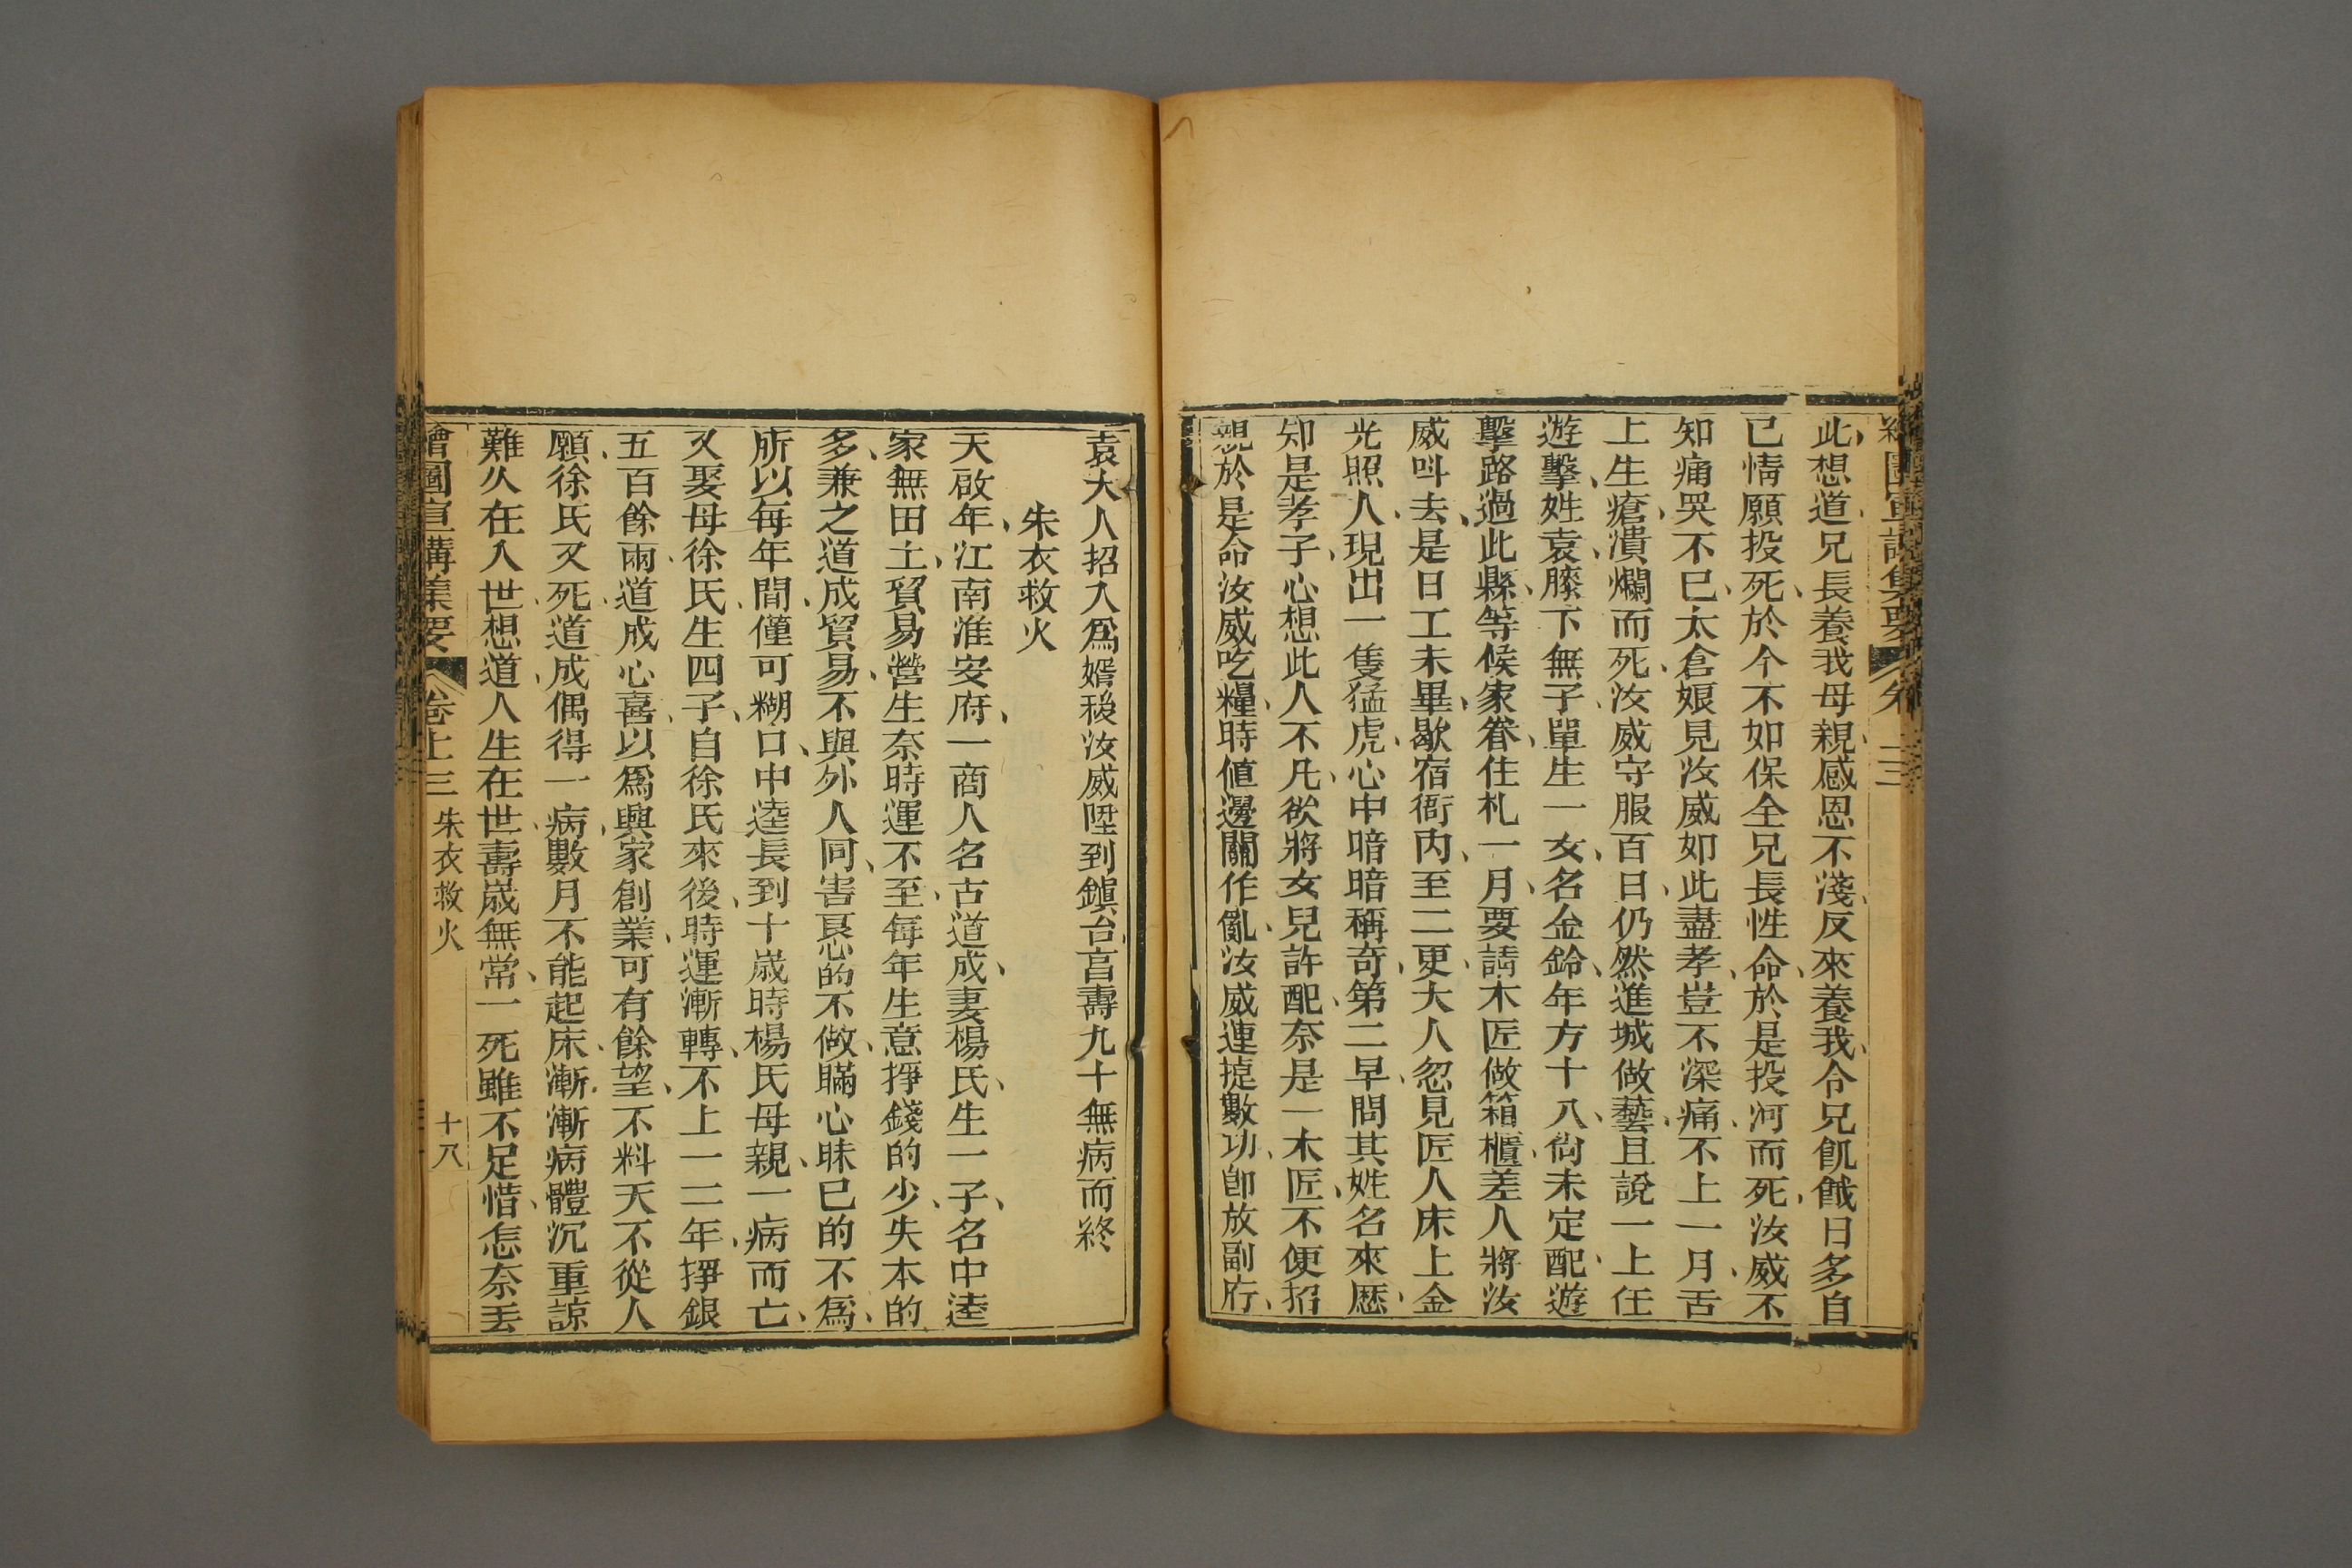 此想道兄長養我母親感恩不淺反來養我令兄飢餓日多自
己情願投死於今不如保全兄長性命於是投河而死汝威不
知痛哭不已太倉娘見汝威如此盡孝豈不深痛不上一月舌
上生瘡潰爛而死汝威守服百日仍然進城做藝且說一上任
遊擊姓袁膝下無子單生一女名金鈴年方十八尙未定配遊
擊路過此縣等候家眷住札一月要請木匠做箱櫃差人將汝
威呌去是日工未畢歇宿衙內至二更大人忽見匠人床上金
光照人現出一隻猛虎心中暗暗稱奇第二早問其姓名來歷
知是孝子心想此人不凡欲將女兒許配奈是一木匠不便招
親於是命汝威吃糧時値邊關作亂汝威連㨗數功卽放副府
袁大人招入爲婿後汝威陞到鎭台言壽九十無病而終
朱衣救火
天啟年江南淮安府一商人名古道成妻楊氏生一子名中逵
家無田土貿易營生奈時運不至每年生意掙錢的少失本的
多兼之道成貿易不與外人同害良心的不做瞞心昧己的不爲
所以每年間僅可糊口中逵長到十歲時楊氏母親一病而亡
又娶母徐氏生四子自徐氏來後時運漸轉不上一二年掙銀
五百餘兩道成心喜以爲興家創業可有餘望不料天不從人
願徐氏又死道成偶得一病數月不能起床漸漸病體沉重諒
難久在人世想道人生在世壽歲無常一死雖不足惜怎奈丟
繪圖宣講集要 卷上三 朱衣救火 十八